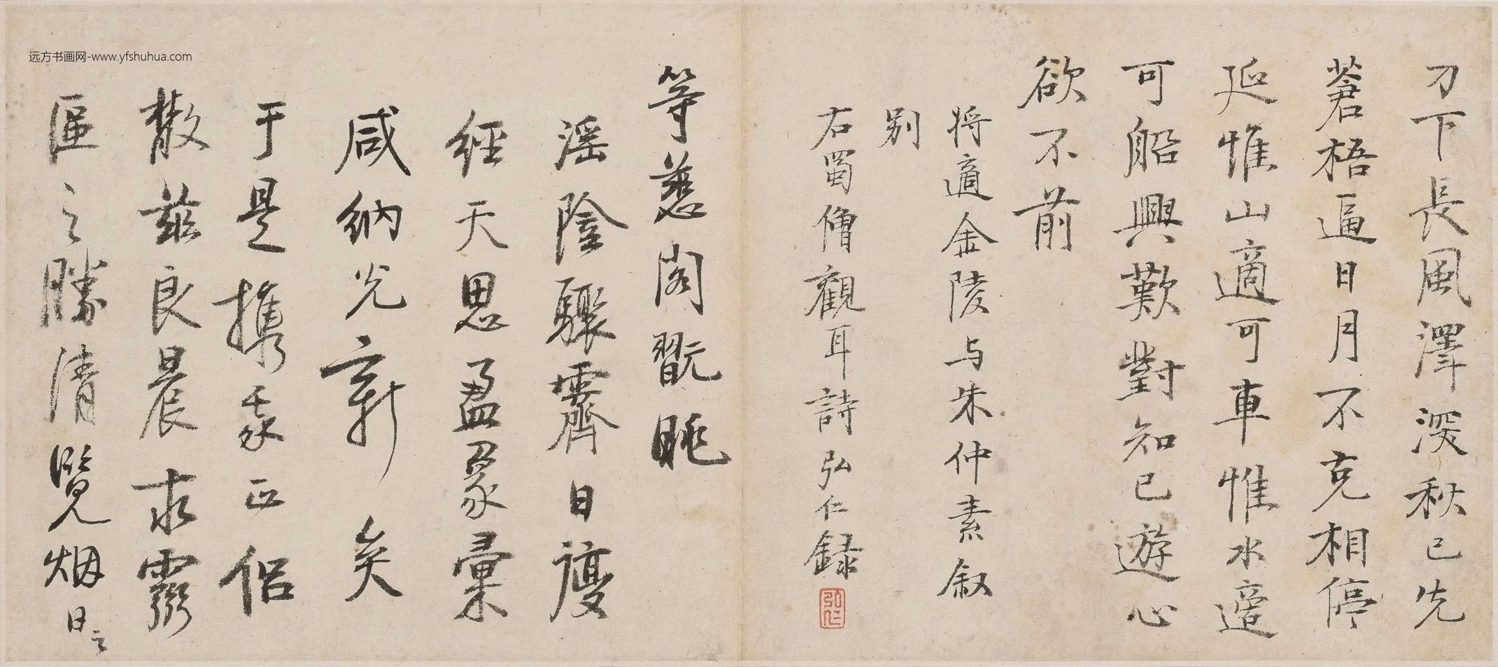 刀下長風澤深秋已先
蒼梧逼日月不克相停
延惟山適可車惟水適
可船興歎對知已遊心
欲不前
將適金陵与朱仲素叙
别
右蜀僧觀耳詩弘仁錄
弘仁
等慈阁翫眺
淫陰驟霽日
經天思盈彙
咸纳光新矣
于是攜正侣
散兹良晨求
區之勝清覽烟日
远方书画网-www.yfshuhua.com